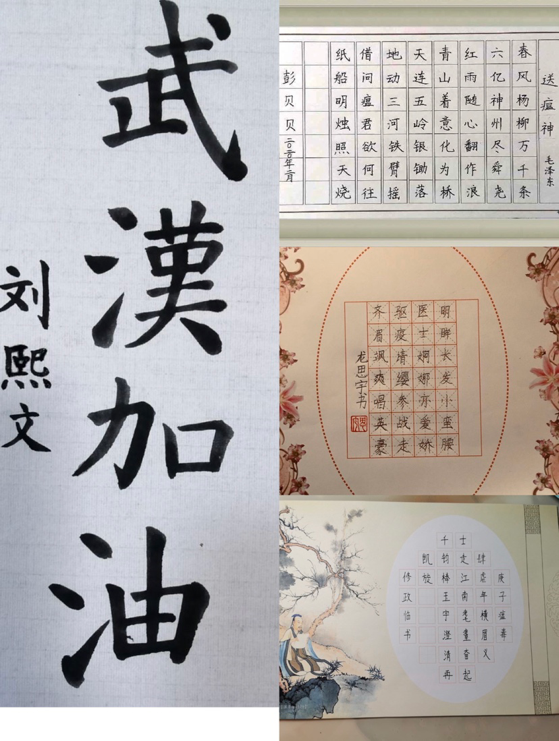 武漢加油
刘熙文
送瘟神 毛泽东
春风杨柳万千条
六亿神州尽舜尧
红雨随心翻作浪
青山着意化为桥
天连五岭银锄落
地动三河铁臂摇
借问瘟君欲何往
纸船明烛照天烧
彭贝贝 二〇二〇年二月
明眸长发小蛮腰
医士婀娜亦爱娇
驱疫请缨参战走
齐眉飒爽唱英豪
龙思宇书
庚子瘟毒
肆虐年横眉义
士走江南耄耋奋起
千钧棒玉宇澄清再
凯旋
修政书